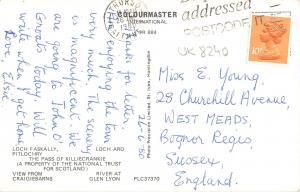 COLOURMASTER
INTERNATIONAL
THURSO
addressed
POSTCODE IT
UK 8240
10P
Photo Precision Limited, St. Ives, Huntingdon
26-6-80
Thanks for letter.
Am enjoying the tour
very much the scenery
is magnificent. We
are going to John O'
Groats Today. Will
(A when I get time
Love Elsie.
Miss E. Young,
28 Churchill Avenue,
WEST MEADS,
Bognor Regis,
Sussex,
England.
LOCH FASKALLY,
PITLOCHRY
LOCH EARN
THE PASS OF KILLIECRANKIE
(A PROPERTY OF THE NATIONAL TRUST
FOR SCOTLAND)
VIEW FROM
CRAIGIEBARNS
RIVER AT
GLEN LYON
PLC37370